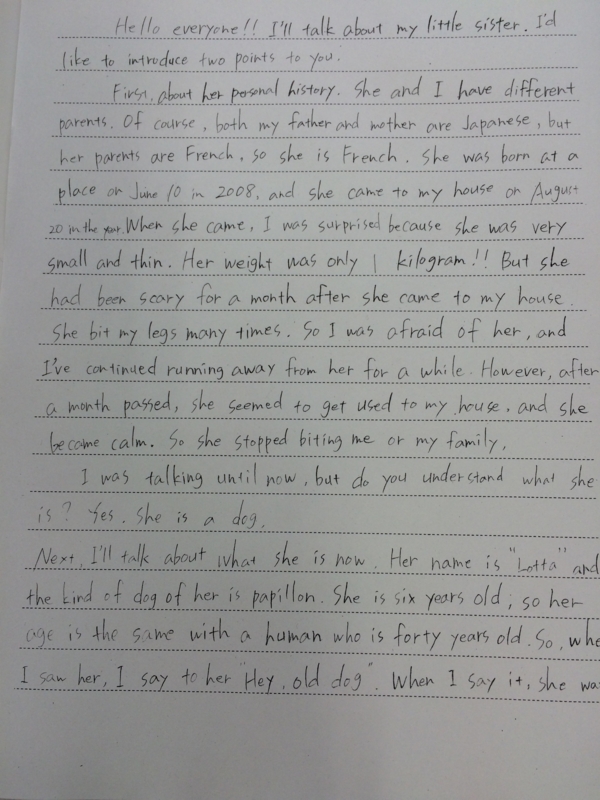 Hello everyone!! I'll talk about my little sister. I'd
like to introduce two points to you.
First, about her personal history. She and I have different
parents. Of course, both my father and mother are Japanese, but
her parents are French, so she is French. She was born at a
place on June 10 in 2008, and she came to my house on August
20 in the year. When she came, I was surprised because she was very
small and thin. Her weight was only 1 kilogram!! But she
had been scary for a month after she came to my house.
She bit my legs many times. So I was afraid of her, and
I've continued running away from her for a while. However, after
a month passed, she seemed to get used to my house, and she
became calm. So she stopped biting me or my family.
I was talking until now, but do you understand what she
is? Yes. She is a dog.
Next, I'll talk about what she is now. Her name is "Lotta" and
the kind of dog of her is papillon. She is six years old, so her
age is the same with a human who is forty years old. So, whe
I saw her, I say to her "Hey, old dog". When I say it, she wa